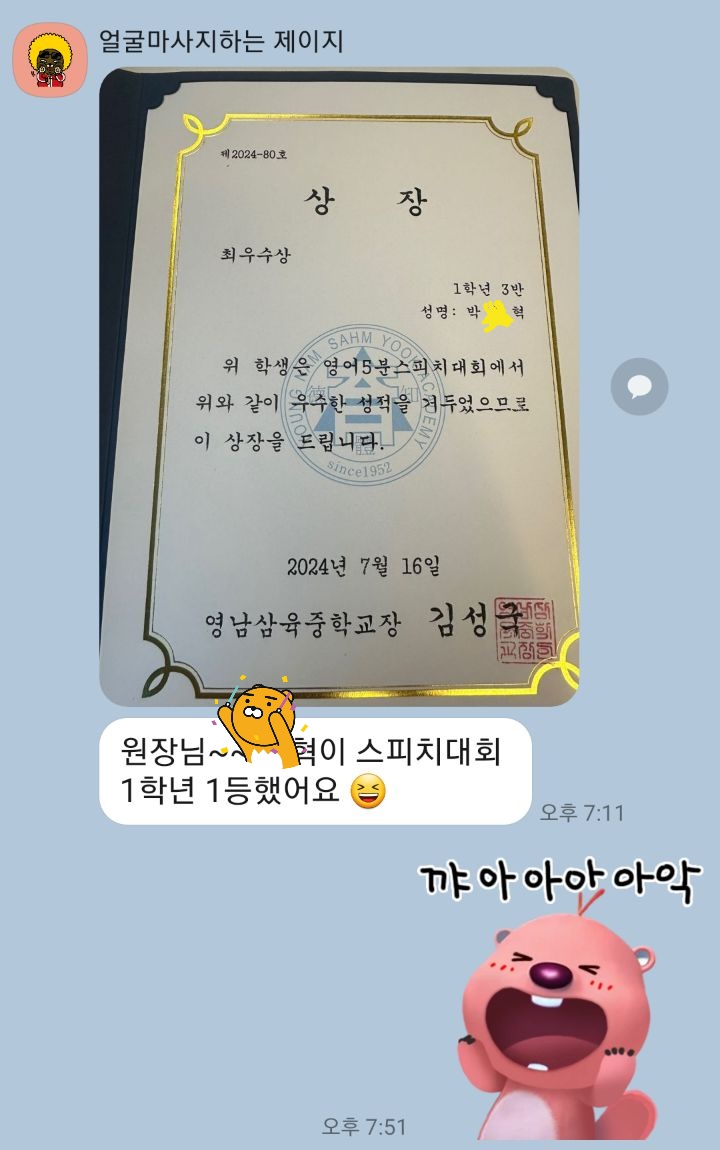 얼굴마사지하는 제이지
제2024-80호
상 장
최우수상
1학년 3반
성명: 박 혁
위 학생은 영어5분스피치대회에서
위와 같이 우수한 성적을 거두었으므로
이 상장을 드립니다.
YOUNG NAM SAHM YOOK ACADEMY
德 知
體
since1952
2024년 7월 16일
영남삼육중학교장 김성국
원장님~~ 혁이 스피치대회
1학년 1등했어요 😆
오후 7:11
꺄아아아아악
오후 7:51